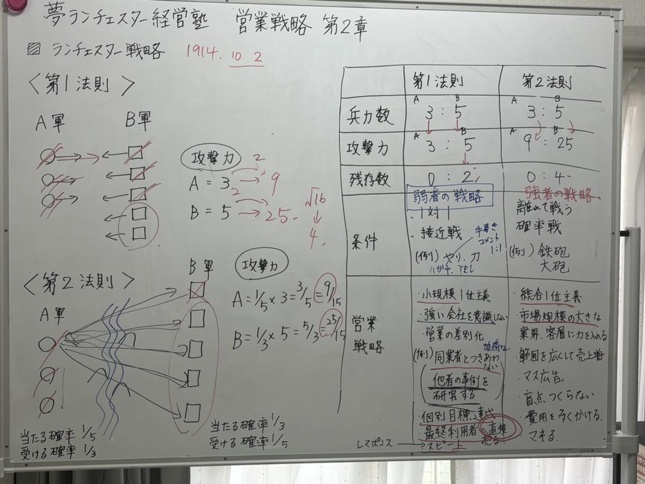 夢ランチェスター経営塾 営業戦略 第2章
ランチェスター戦略 1914. 10 2
〈第1法則〉
A軍 B軍
攻撃力
2
A = 3 → 9
2
B = 5 → 25
√16
↓
4
〈第2法則〉
A軍
B軍
攻撃力
A = 1/5 × 3 = 3/5 = 9/15
B = 1/3 × 5 = 5/3 = 25/15
当たる確率 1/5
受ける確率 1/3
当たる確率 1/3
受ける確率 1/5
第1法則 第2法則
A B A B
兵力数 3 : 5 3 : 5
A B
攻撃力 3 : 5 9 : 25
残存数 0 : 2 0 : 4
条件
弱者の戦略
・1対1
・接近戦
(例) ヤリ、刀
ハガキ
手書き
コメント
1:1
強者の戦略
離れて戦う
確率戦
(例) 鉄砲
大砲
営業
戦略
・小規模1位主義
・強い会社を意識しない
・営業の差別化
(例) 同業者とつきあわない
他者の事例を
研究する
・個別目標達成
最終利用者
レスポンス → スピード
・総合1位主義
・市場規模の大きな
業界、客層に力を入れる
範囲を広くして売上増
・マス広告
・盲点つくらない
・費用を多くかける
・マネる